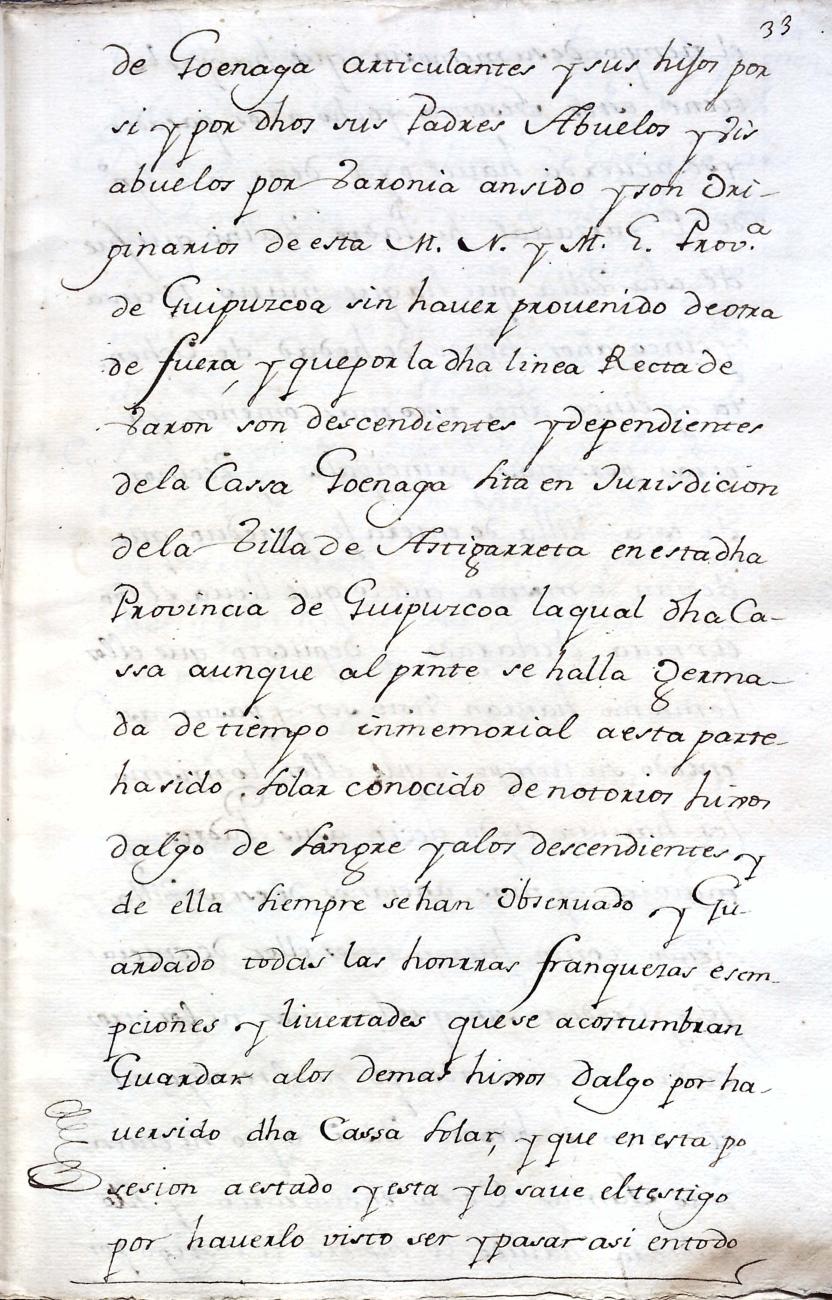 33
de Goenaga articulantes y sus hijos por
si y por dhos sus Padres Abuelos y vis
abuelos por Varonia an sido y son Ori-
ginarios de esta M. N. y M. L. Prov.ª
de Guipuzcoa sin haver provenido de otra
de fuera, y que por la dha linea Recta de
Varon son descendientes y dependientes
de la Cassa Goenaga sita en Jurisdicion
de la Villa de Astigarreta en esta dha
Provincia de Guipuzcoa la qual dha Ca-
ssa aunque al prñte se halla Yerma-
da de tiempo inmemorial a esta parte
ha sido solar conocido de notorios hixos
dalgo de sangre y a los descendientes y
de ella siempre se han Observado y Gu-
ardado todas las honrras franquezas esem-
pciones y livertades que se acostumbran
Guardar a los demas hixos dalgo por ha-
versido dha Cassa solar, y que en esta po
sesion a estado y esta y lo save el testigo
por haverlo visto ser y pasar asi en todo